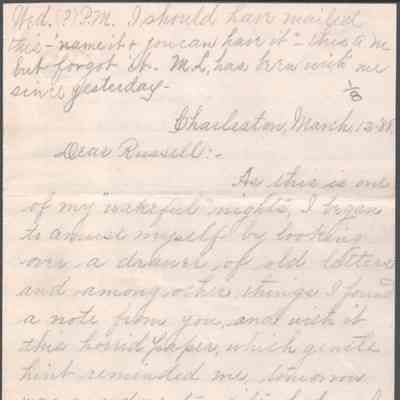 Wed. (?) P.M. I should have mailed
this - "name it & you can have it" - this a.m.
but forgot it. M.L. has been with me
since yesterday -
1/8
Charleston, March 12-'88.
Dear Russell:-
As this is one
of my "wakeful" nights, I began
to amuse myself by looking
over a drawer of old letters
and among other things I found
a note from you, and with it
this horrid paper, which gentle
hint reminded me tomorrow
was